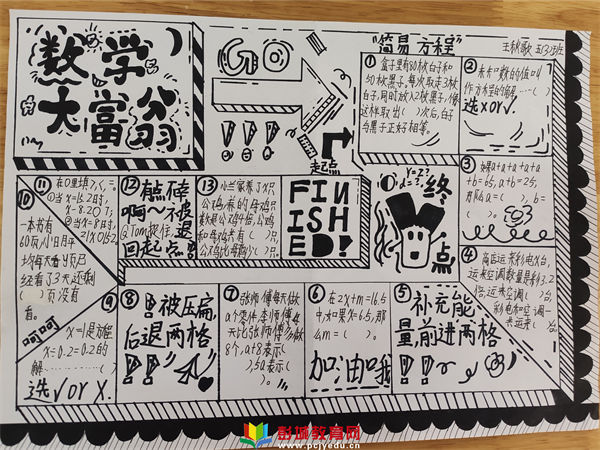 数学
大富翁
GO
!!!
起点
"简易方程"
王秋歌 五(3)班
① 盒子里有80枚白子和
50枚黑子,每次取走3枚
白子,同时放入2枚黑子,像
这样取出( )次后,白子
与黑子正好相等。
② 未知数的值叫
作方程的解……( )
选X or √.
③ 如果a+a+a+a+a
+b=65, a+b=25,
那么a=( ), b=
( )。
④ 商店运来彩电X台,
运来空调数量是彩电3.2
倍,运来空调( )台,
彩电和空调一
共运来( )台。
⑤ 补充能
量,前进两格
!!
⑥ 在2x+m=16.5
中,如果x=6.5,那
么m=( )。
加油哦
⑦ 张师傅每天做
a个零件,李师傅每
天比张师傅多做
8个, a+8表示(
), 5a表示(
)。
⑧ !被压扁,
后退两格
!!
⑨ x=1是方程
x÷0.2=0.2的
解………( )
选√ or X.
⑩ 一本书有
60页,小明平
均每天看y页,已
经看了3天,还剩
( )页没有
看。
呵呵
⑪ 在○里填>、<、=
当x=15.2时,
x-8.2○7;
当x=8时,
2x○15.2
⑫ 有点倖
啊~不被退
@Tom按住,
回起点!
⑬ 小兰家养了X只
公鸡,养的母鸡只
数是公鸡4倍,公鸡
和母鸡共有( )只,
公鸡比母鸡少( )只。
FIN
ISH
ED!
Y=2?
d=?
终
点
彭城教育网
www.pcjyedu.cn